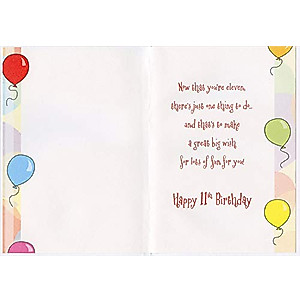 Now that you're eleven,
there's just one thing to do..
and that's to make
a great big wish
for lots of fun for you!
Happy 11th Birthday